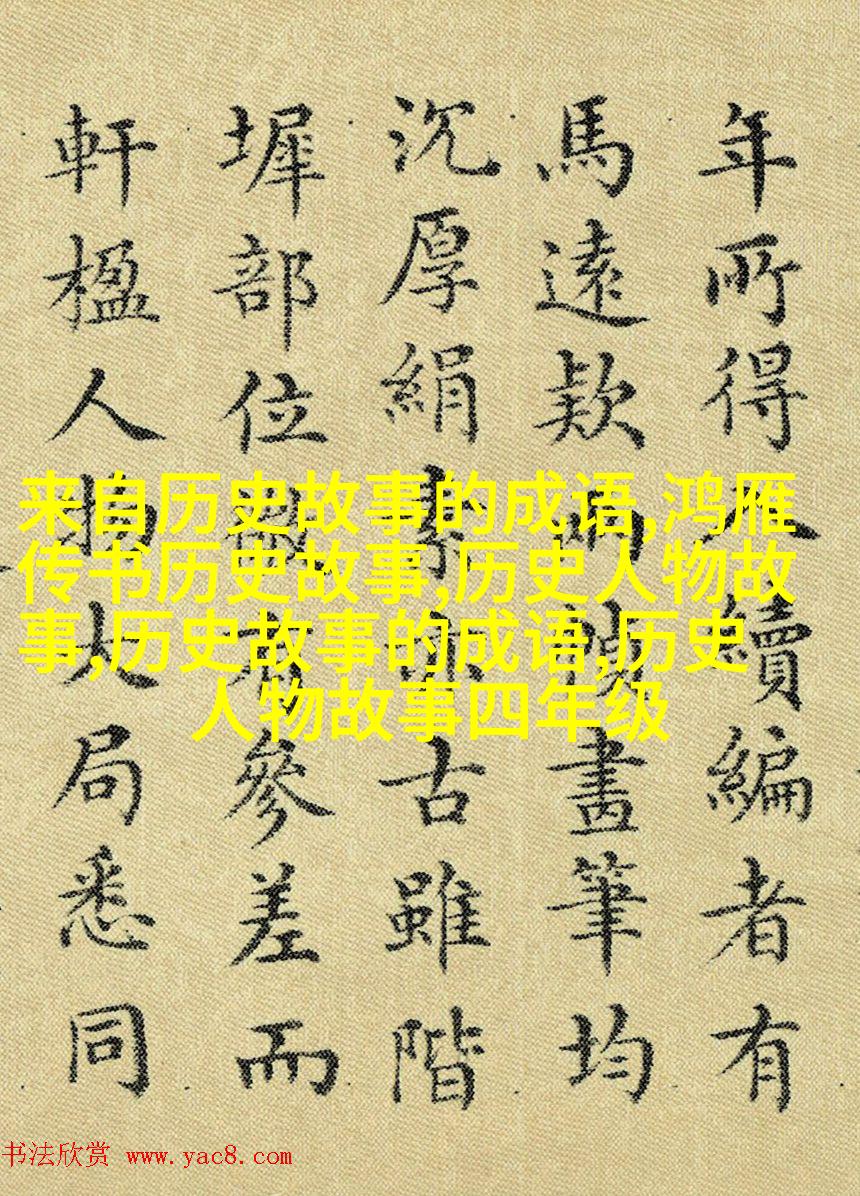 年所得入續編者有
馬遠款畫筆均
沉厚絹素亦古雖階
墀部位有參差而
軒楹人物大局悉同
来自历史故事的成语,鸿雁
传书历史故事,历史人物故
事,历史故事的成语,历史
人物故事四年级
书法欣赏 www.yac8.com